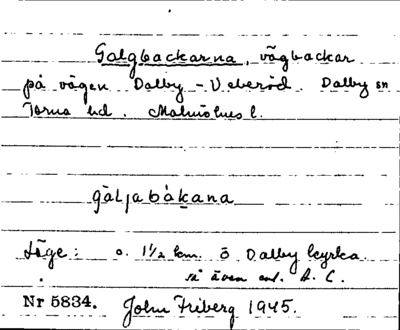 Galgbackarna, vägbackar
på vägen Dalby - Veberöd. Dalby sn
Torna hd. Malmöhus l.
gàljabákana
Läge: o. 1½ km. ö Dalby kyrka.
så även enl. A. C.
Nr 5834. John Friberg 1945.